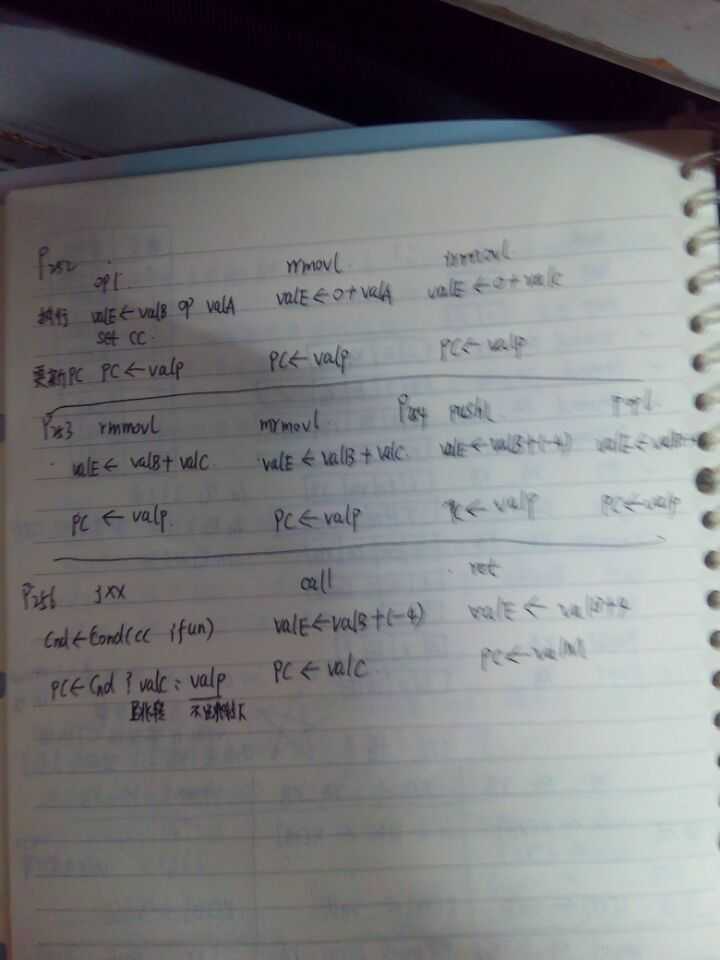 P252
opl rrmovl irmovl
执行 valE ← valB op valA valE ← 0 + valA valE ← 0 + valC
set CC.
更新PC PC ← valp PC ← valp PC ← valp
P253 rmmovl mrmovl. P254 pushl popl
valE ← valB + valC. valE ← valB + valC. valE ← valB + (-4) valE ←
PC ← valp. PC ← valp PC ← valp PC ← valp
P256 jxx call ret
Cnd ← Cond(cc ifun) valE ← valB + (-4) valE ← valB + 4
PC ← Cnd ? valC : valp PC ← valC PC ← valM